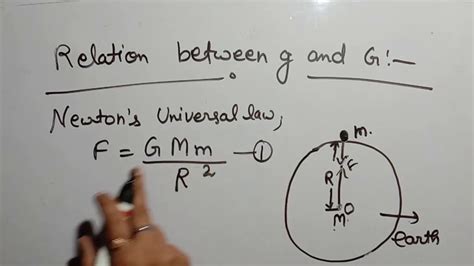 Relation between g and G:—
Newton's Universal law,
F = G M m / R² —①
m.
F
R
M
O
earth